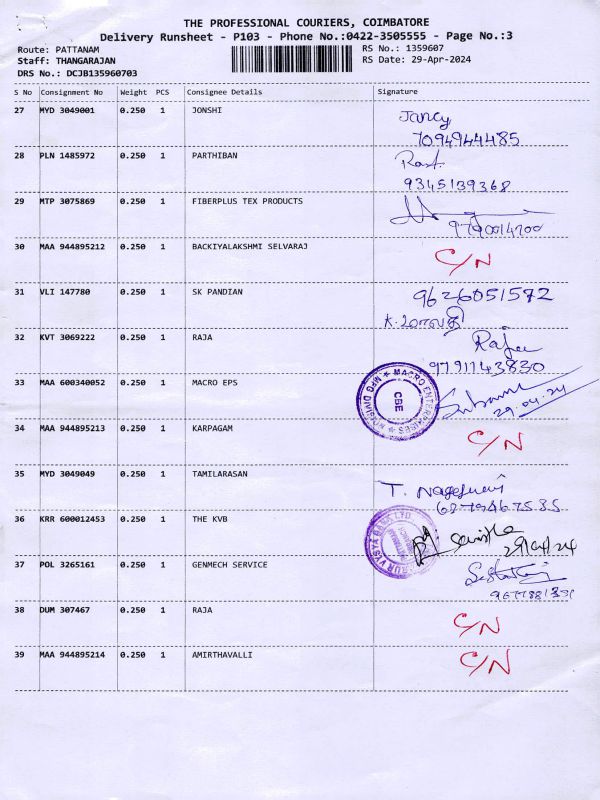 THE PROFESSIONAL COURIERS, COIMBATORE
Delivery Runsheet - P103 - Phone No.:0422-3505555 - Page No.:3
Route: PATTANAM RS No.: 1359607
Staff: THANGARAJAN RS Date: 29-Apr-2024
DRS No.: DCJB135960703
S No Consignment No Weight PCS Consignee Details Signature
27 MYD 3049001 0.250 1 JONSHI Jancy
7094944485
28 PLN 1485972 0.250 1 PARTHIBAN
9345139368
29 MTP 3075869 0.250 1 FIBERPLUS TEX PRODUCTS
30 MAA 944895212 0.250 1 BACKIYALAKSHMI SELVARAJ C/N
31 VLI 147780 0.250 1 SK PANDIAN 9626051572
32 KVT 3069222 0.250 1 RAJA
9791143830
33 MAA 600340052 0.250 1 MACRO EPS MACRO ENTERPRISES CBE
29.04.24
34 MAA 944895213 0.250 1 KARPAGAM C/N
35 MYD 3049049 0.250 1 TAMILARASAN T.
36 KRR 600012453 0.250 1 THE KVB
29/04/24
37 POL 3265161 0.250 1 GENMECH SERVICE
38 DUM 307467 0.250 1 RAJA C/N
39 MAA 944895214 0.250 1 AMIRTHAVALLI C/N